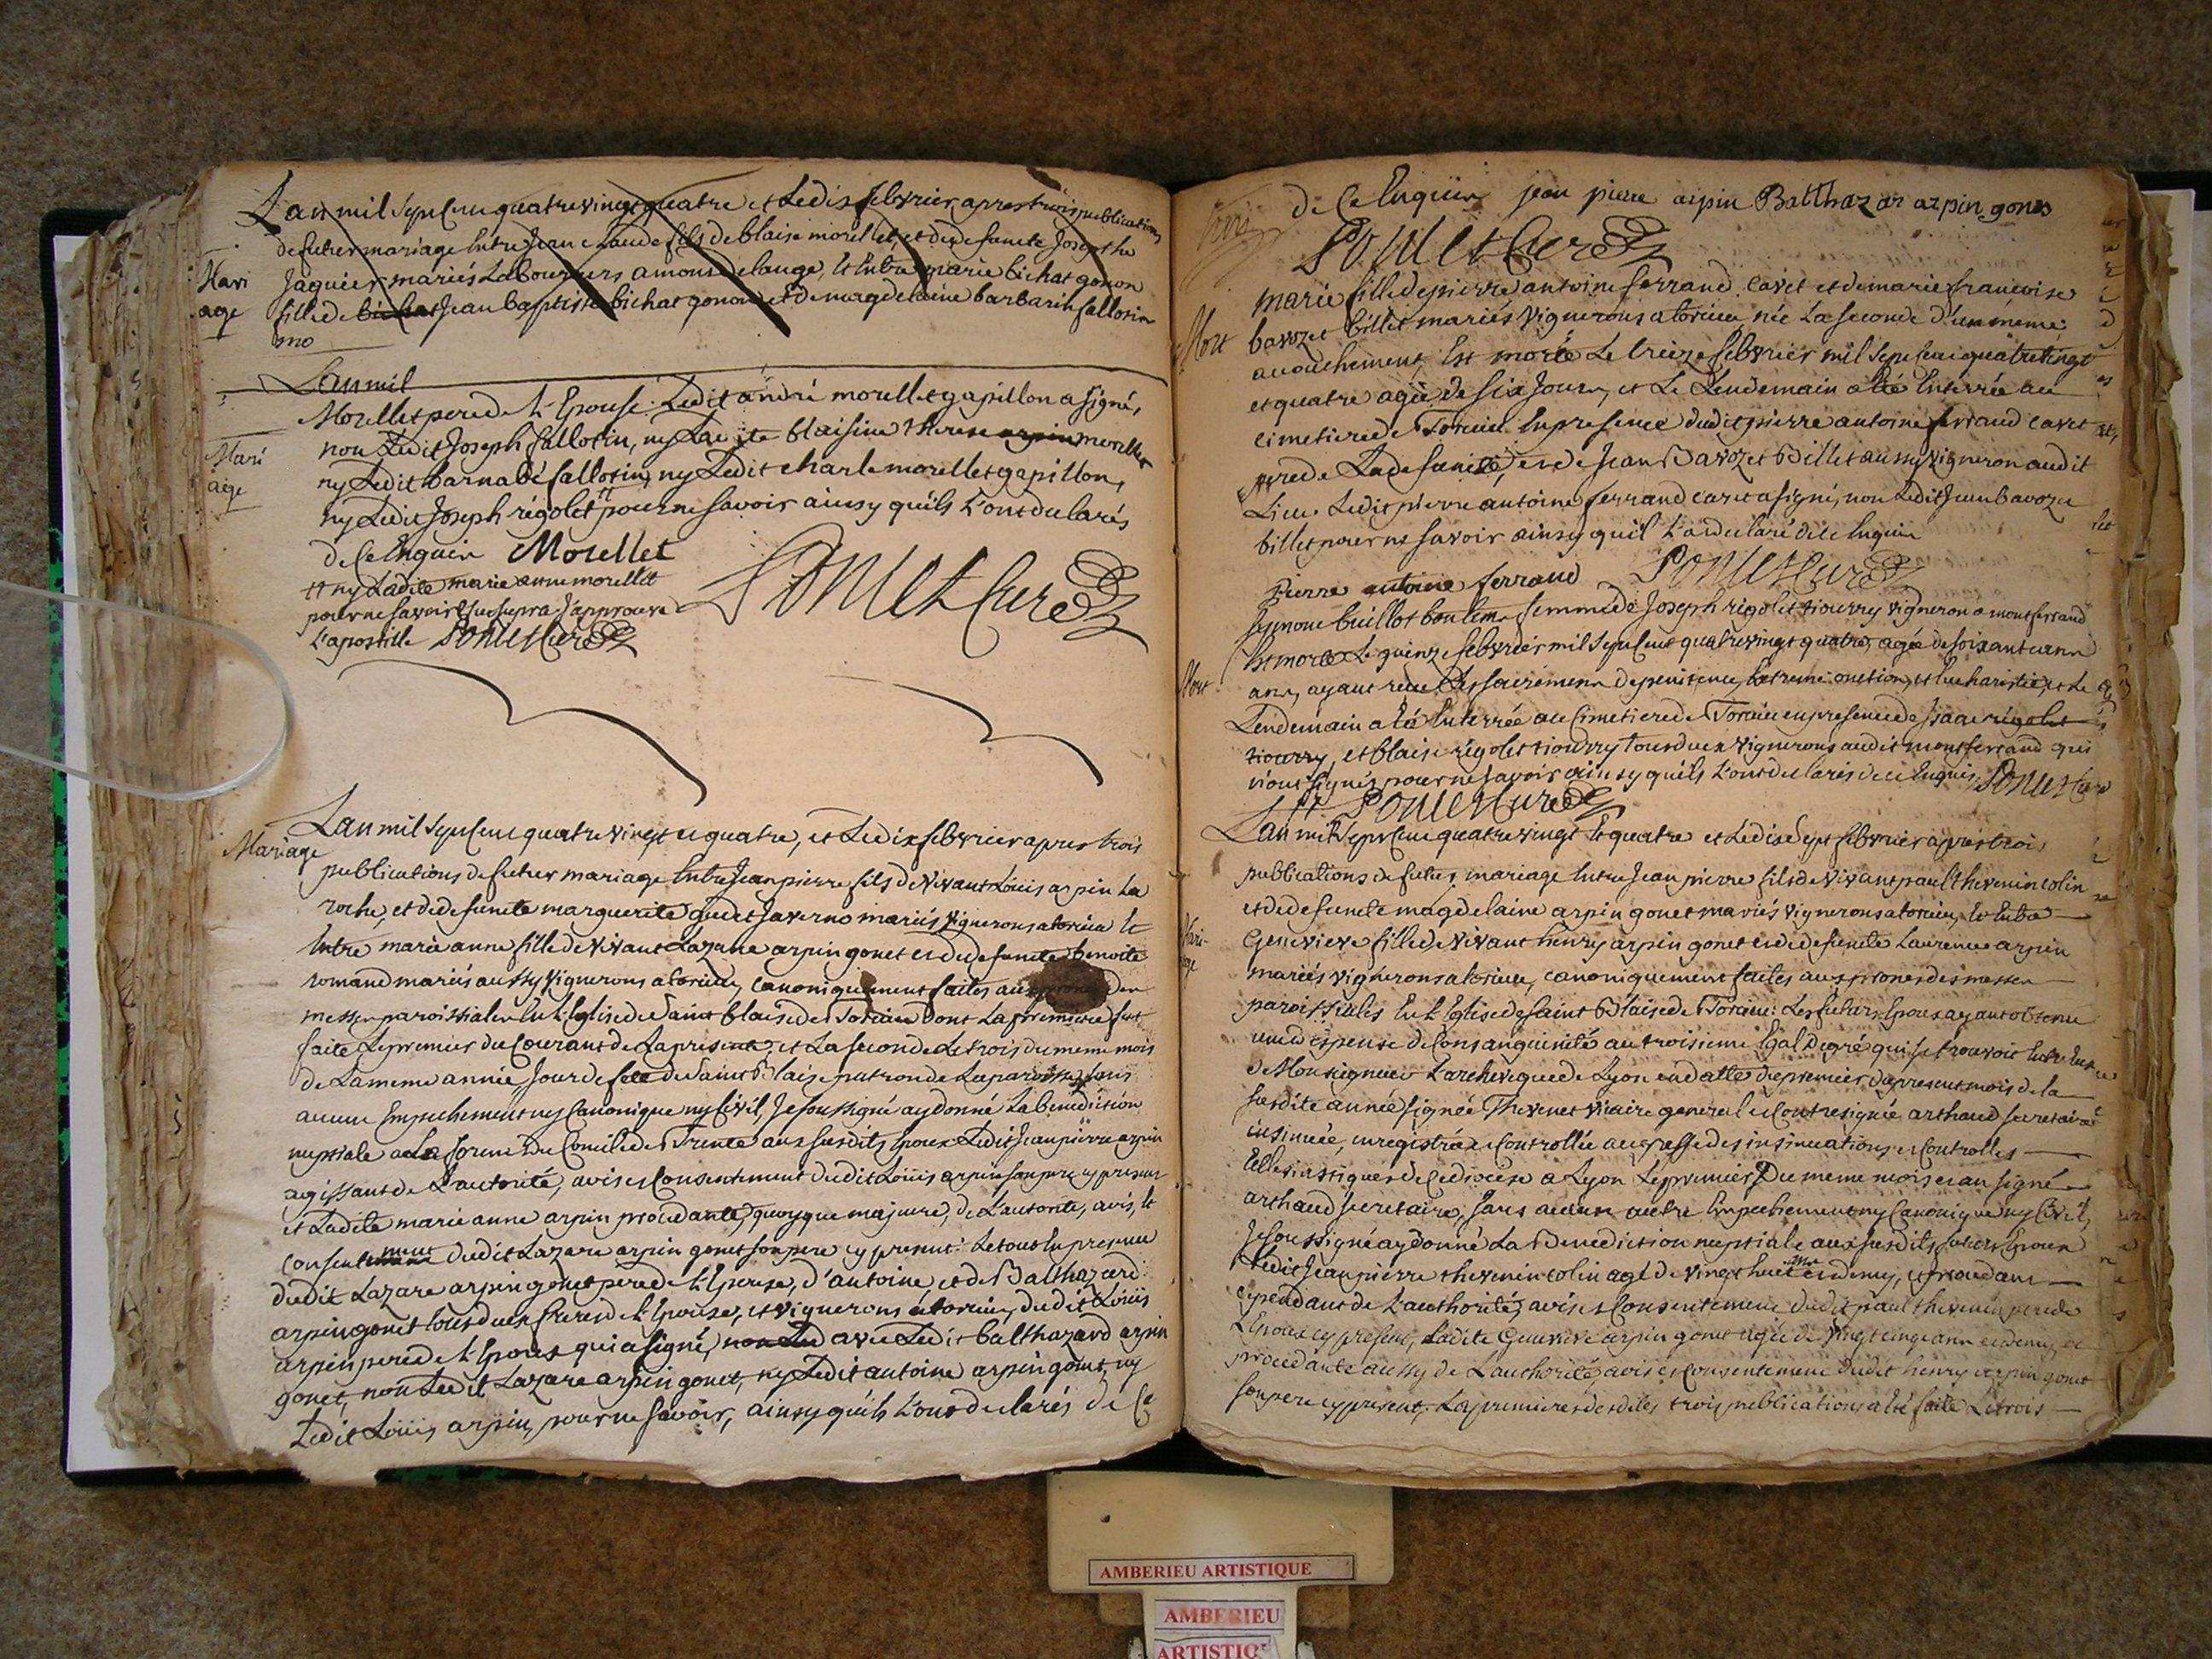 Lan mil Sept Cent quatre vingt quatre et Le dix febvrier apres trois publications
de futur mariage Entre Jean Claude fils de blaise morellet, et de defuncte Josephe
Mari
age
Jaquier mariés Laboureurs a mont de lange, Et Entre marie bichat gonon
fille de bichat Jean baptiste bichat gonon et de magdelaine barbarin fallotin
mo
Lan mil
Morellet pere de L'Epouse. Ledit andré morellet gapillon a signé,
Mari
age
non Ledit Joseph fallotin, ny Ladite blaisine therese arpin morellet
ny Ledit barnabé fallotin, ny Ledit charle morellet gapillon,
ny Ledit Joseph régolet pour ne savoir ainsy qu'ils L'ont declarés
de Ce Enquis Morellet
et ny Ladite marie anne morellet
pour ne savoir Ut supra J'approuve
L'apostille Ponset Curé
Ponset Curé
Mariage
Lan mil Sept Cent quatre vingt et quatre, et Le dix febvrier apres trois
publications de futur mariage Entre Jean pierre fils de vivant Loüis arpin La
roche, et de defuncte marguerite mariés vignerons a torcieu Et
Entre marie anne fille de vivant Lazare arpin gonet et de defuncte benoite
romand mariés aussy vignerons a torcieu, canoniquement faites aux prones des
messes paroissiales En L'Eglise de Saint blaise de Torcieu dont La premiere fut
faite Le premier du Courant de La presente, et La seconde Le trois du meme mois
de La meme année, Jour de fete de Saint Blaise patron de La paroisse, sans
aucun Empechement ny Canonique ny Civil, Je soussigné ay donné La benediction
nuptiale a La forme du Concile de Trente aux susdits Epoux Ledit Jean pierre arpin
agissant de L'autorité, avis et Consentement dudit Loüis arpin son pere cy present
et Ladite marie anne arpin procedante, quoyque majeure, de L'autorité, avis, et
consentement dudit Lazare arpin gonet son pere cy present: Le tout En presence
dudit Lazare arpin gonet pere de L'Epouse, d'antoine, et de Balthazard
arpin gonet tous deux freres de L'Epouse, et vignerons a torcieu, dudit Loüis
arpin pere de L'Epoux qui a signé, non Led avec Ledit balthazard arpin
gonet, non Ledit Lazare arpin gonet, ny Ledit antoine arpin gonet, ny
Ledit Loüis arpin, pour ne savoir, ainsy qu'ils L'ont declarés de Ce
de Ce Enquis jean pierre arpin Balthazar arpin gones
Ponset Curé
marie fille de pierre antoine ferrand cavet et de marie francoise
Mort
bavozet billet mariés vignerons a torcieu, née La seconde d'un même
acouchement, Est morte Le treize febvrier mil Sept Cent quatre vingt
et quatre agée de six Jours, et Le Lendemain a eté Enterrée au
cimetiere de Torcieu En presence dudit pierre antoine ferrand cavet
pere de La defuncte, et de Jean Bavozet Billet aussy vigneron audit
Lieu. Ledit pierre antoine ferrand cavet a signé, non Ledit Jean bavozet
billet pour ne savoir ainsy qu'il L'a declaré de Ce Enquis
Pierre antoine ferrand Ponset Curé
femme de Joseph rigolet tiourry vigneron a montferrand
Est morte Le quinze febvrier mil Sept Cent quatre vingt quatre, agée de soixante un
Mort
ans, ayant reçue Les sacremens de penitence, Extreme onction, et Eucharistie, et Le
Lendemain a eté Enterrée au Cimetiere de Torcieu en presence de Isaac régolet
tiourry, et blaise régolet tiourry tous deux vignerons audit montferrand qui
n'ont signés pour ne savoir ainsy qu'ils L'ont declarés de ce Enquis. Ponset Curé
Ponset Curé
Lan mil Sept Cent quatre vingt Et quatre et Le dix Sept febvrier après trois
publications de futur mariage Entre Jean pierre fils de vivant paul thevenin colin
et de defuncte magdelaine arpin gonet mariés vignerons a torcieu, Et Entre
Mari
age
Genevieve fille de vivant henry arpin gonet et de defuncte Laurence arpin
mariés vignerons a torcieu, canoniquement faites aux prones des messes
paroissiales En L'Eglise de Saint Blaise de Torcieu: Les futurs Epoux ayant obtenu
une dispense de Consanguinité au troisieme Egal degré qui se trouvoit Entre Eux
de Monseigneur L'archeveque de Lyon en datte du premier du present mois de la
susdite année signée Thevenet vicaire general et Contresignée arthaud secretaire
insinuée, enregistrée et Controllée au greffe des insinuations et Controlles
Ecclesiastiques de Ce diocese a Lyon Le premier Du meme mois et an signé
arthaud secretaire, sans aucun autre Empechement ny Canonique ny Civil,
Je soussigné ay donné La Benediction nuptiale aux susdits futurs Epoux
Ledit Jean pierre thevenin colin agé de vingt huit ans et demy, et procedant
cependant de L'authorité, avis et Consentement dudit paul thevenin pere de
L'Epoux cy present, Ladite Genevieve arpin gonet agée de vingt cinq ans et demy, et
procedante aussy de L'authorité, avis et Consentement dudit henry arpin gonet
son pere cy present, La premiere desdites trois publications a eté faite Le trois
AMBERIEU ARTISTIQUE
AMBERIEU